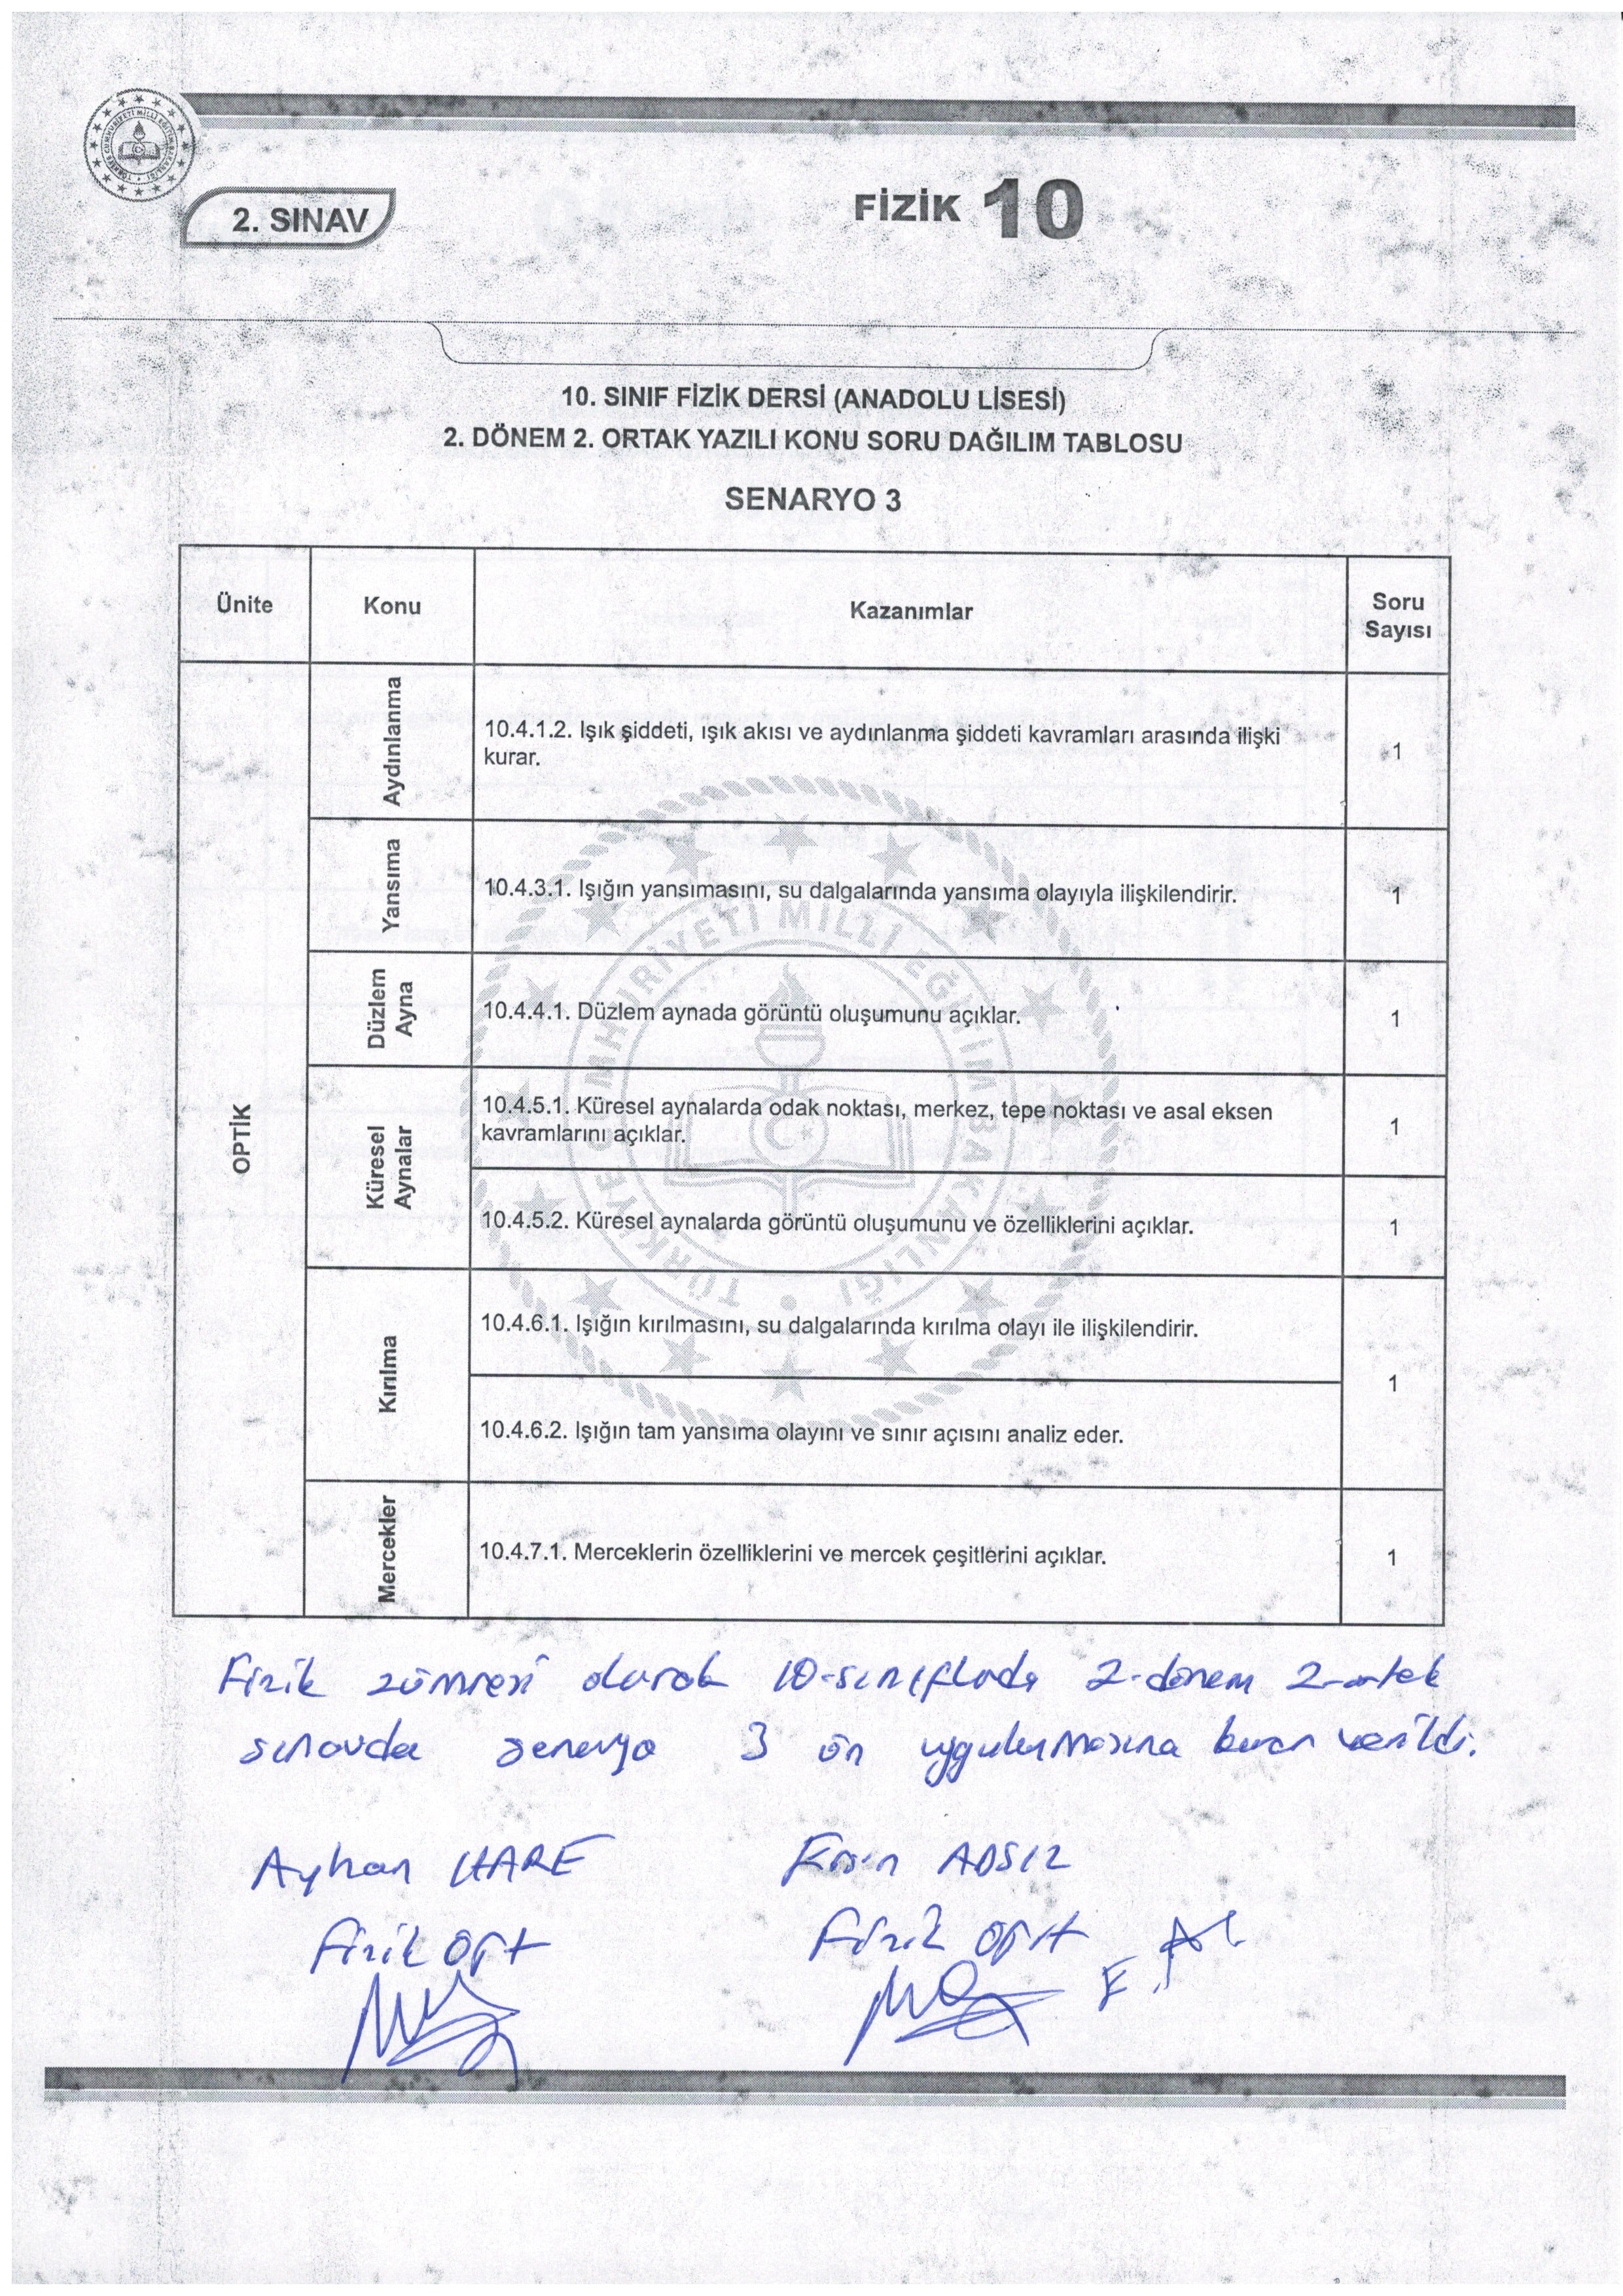 2. SINAV
FİZİK 10
10. SINIF FİZİK DERSİ (ANADOLU LİSESİ)
2. DÖNEM 2. ORTAK YAZILI KONU SORU DAĞILIM TABLOSU
SENARYO 3
Ünite
Konu
Kazanımlar
Soru
Sayısı
OPTİK
Aydınlanma
10.4.1.2. Işık şiddeti, ışık akısı ve aydınlanma şiddeti kavramları arasında ilişki
kurar.
1
Yansıma
10.4.3.1. Işığın yansımasını, su dalgalarında yansıma olayıyla ilişkilendirir.
1
Düzlem
Ayna
10.4.4.1. Düzlem aynada görüntü oluşumunu açıklar.
1
Küresel
Aynalar
10.4.5.1. Küresel aynalarda odak noktası, merkez, tepe noktası ve asal eksen
kavramlarını açıklar.
1
10.4.5.2. Küresel aynalarda görüntü oluşumunu ve özelliklerini açıklar.
1
Kırılma
10.4.6.1. Işığın kırılmasını, su dalgalarında kırılma olayı ile ilişkilendirir.
10.4.6.2. Işığın tam yansıma olayını ve sınır açısını analiz eder.
1
Mercekler
10.4.7.1. Merceklerin özelliklerini ve mercek çeşitlerini açıklar.
1
TÜRKİYE CUMHURİYETİ MİLLİ EĞİTİM BAKANLIĞI
Fizik zümresi olarak 10-sınıflarda 2-dönem 2-ortak
sınavda senaryo 3 ün uygulanmasına karar verildi.
Ayhan HARE
ADSIZ
Fizik Öğt
Fizik Öğrt